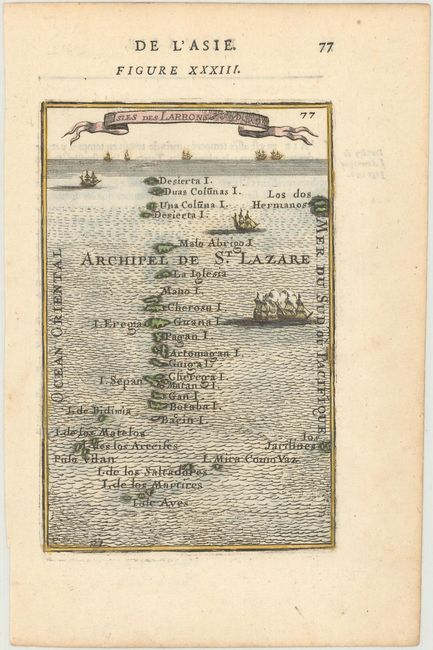 DE L'ASIE.
77
FIGURE XXXIII.
ISLES DES LARRONS
77
Desierta I.
Duas Colunas I.
Una Coluna I.
Desierta I.
Los dos
Hermanos
Malo Abrigo I
ARCHIPEL DE ST. LAZARE
La Iglesia
Mano I.
Cherosu I.
I. Erega
Guana I.
Pagan I.
Artomagan I.
Guiga I.
Cherega I.
I. Sepan
Matan I.
Gan I.
Botaba I.
Bacin I.
I. de Didimia
I. de los Matelos
I. des los Arecifes
Pulo Vilan
los
Jardines
I. Mira Como Vaz
I. de los Saltadores
I. de los Martires
I. de Aves
OCEAN ORIENTAL
MER DU SUD OU PACIFIQUE